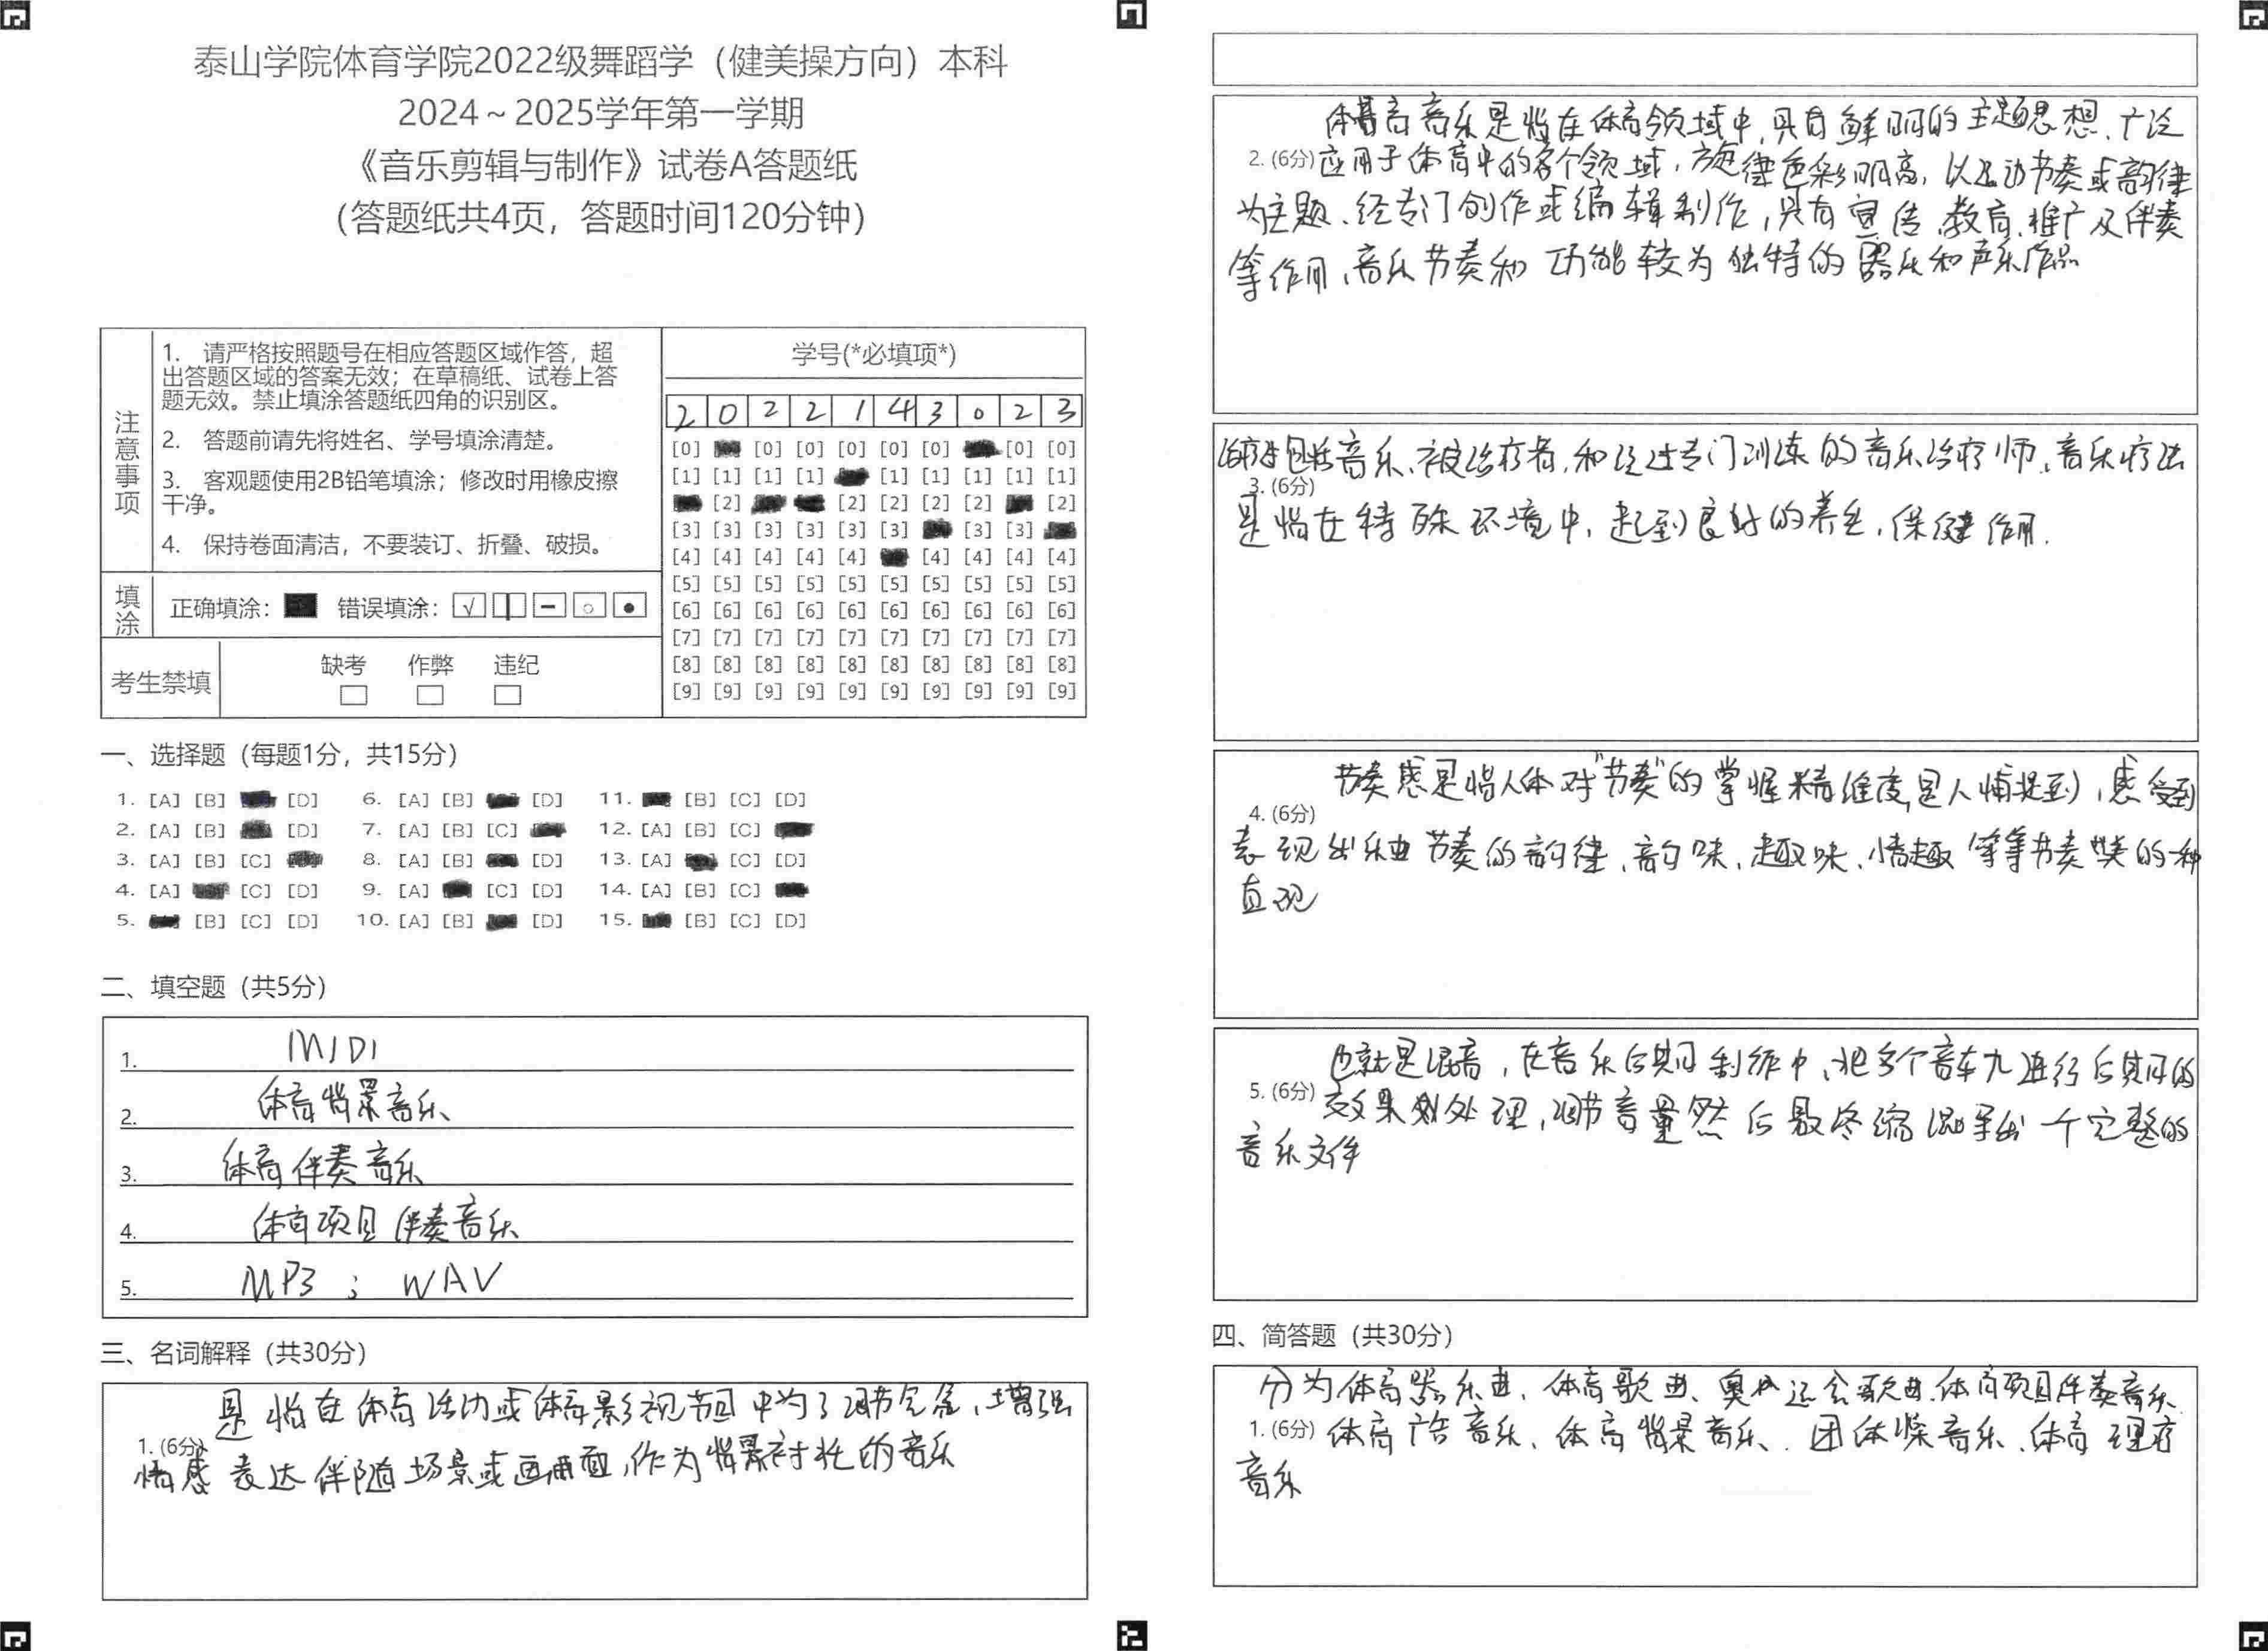 泰山学院体育学院2022级舞蹈学（健美操方向）本科
2024～2025学年第一学期
《音乐剪辑与制作》试卷A答题纸
（答题纸共4页，答题时间120分钟）
注意事项
1. 请严格按照题号在相应答题区域作答，超
出答题区域的答案无效；在草稿纸、试卷上答
题无效。禁止填涂答题纸四角的识别区。
2. 答题前请先将姓名、学号填涂清楚。
3. 客观题使用2B铅笔填涂；修改时用橡皮擦
干净。
4. 保持卷面清洁，不要装订、折叠、破损。
填涂
正确填涂： 错误填涂：
考生禁填
缺考 作弊 违纪
学号(*必填项*)
2 0 2 2 1 4 3 0 2 3
[0] [0] [0] [0] [0] [0] [0] [0]
[1] [1] [1] [1] [1] [1] [1] [1] [1]
[2] [2] [2] [2] [2] [2]
[3] [3] [3] [3] [3] [3] [3] [3]
[4] [4] [4] [4] [4] [4] [4] [4] [4]
[5] [5] [5] [5] [5] [5] [5] [5] [5] [5]
[6] [6] [6] [6] [6] [6] [6] [6] [6] [6]
[7] [7] [7] [7] [7] [7] [7] [7] [7] [7]
[8] [8] [8] [8] [8] [8] [8] [8] [8] [8]
[9] [9] [9] [9] [9] [9] [9] [9] [9] [9]
一、选择题（每题1分，共15分）
1. [A] [B] [D] 6. [A] [B] [D] 11. [B] [C] [D]
2. [A] [B] [D] 7. [A] [B] [C] 12. [A] [B] [C]
3. [A] [B] [C] 8. [A] [B] [D] 13. [A] [C] [D]
4. [A] [C] [D] 9. [A] [C] [D] 14. [A] [B] [C]
5. [B] [C] [D] 10. [A] [B] [D] 15. [B] [C] [D]
二、填空题（共5分）
1. MIDI
2. 体育背景音乐
3. 体育伴奏音乐
4. 体育项目伴奏音乐
5. MP3 ； WAV
三、名词解释（共30分）
是指在体育活动或体育影视节目中为了调节气氛、增强
1. (6分)
情感表达伴随场景或画面，作为背景衬托的音乐
体育音乐是指在体育领域中，具有鲜明的主题思想、广泛
2. (6分) 应用于体育中的各个领域，旋律色彩明亮，以运动节奏或韵律
为主题、经专门创作或编辑制作，具有宣传、教育、推广及伴奏
等作用、音乐节奏和功能较为独特的器乐和声乐作品
包括音乐、被治疗者、和经过专门训练的音乐治疗师、音乐疗法
3. (6分)
是指在特殊环境中，起到良好的养生，保健作用.
节奏感是指人体对"节奏"的掌握精准度，是人捕捉到，感受到
4. (6分)
表现出乐曲节奏的韵律、韵味、趣味、情趣等等节奏类的一种
直观
也就是混音，在音乐后期制作中、把多个音轨进行后期的
5. (6分) 效果处理，调节音量然后最终缩混导出一个完整的
音乐文件
四、简答题（共30分）
分为体育器乐曲、体育歌曲、奥运会歌曲、体育项目伴奏音乐、
1. (6分) 体育广告音乐、体育背景音乐、团体操音乐、体育理疗
音乐